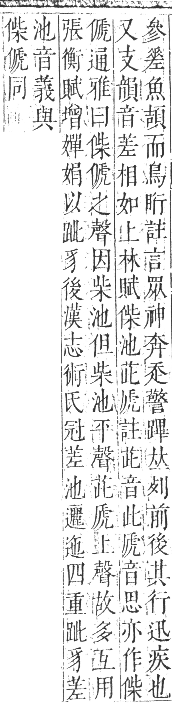 參差魚頡而鳥䀪註言眾神奔走警蹕夶列前後其行迅疾也
又支韻音差相如上林賦傑池茈虒註茈音此虒音思亦作傑
傂通雅曰傑傂之聲因柴池但柴池平聲茈虒上聲故多互用
張衡賦增嬋娟以跐豸後漢志術氏冠差池邐迤四重跐豸差
池音義與
傑傂同